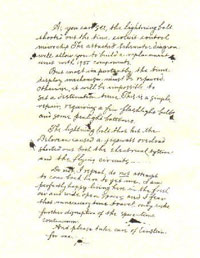 As you can see, the lightning bolt
shorted out the time circuit control
microchip. The attached schematic diagram
will allow you to build a replacement
unit with 1955 components.
But most importantly the time
display must be repaired
Otherwise, it will be impossible to
set a destination time. This is a simple
repair, requiring a few flashlight bulbs
and some
The lightning bolt that hit the
Delorean caused a gigawatt overload
shorted out both the
and the flying circuits
Do not, I repeat, do not attempt
to come back here to get me. I am
perfectly happy living here in the fresh
air and wide open spaces, and I fear
that unnecessary time travel only risks
further disruption of the space-time
continuum.
And please take care of Einstein
for me